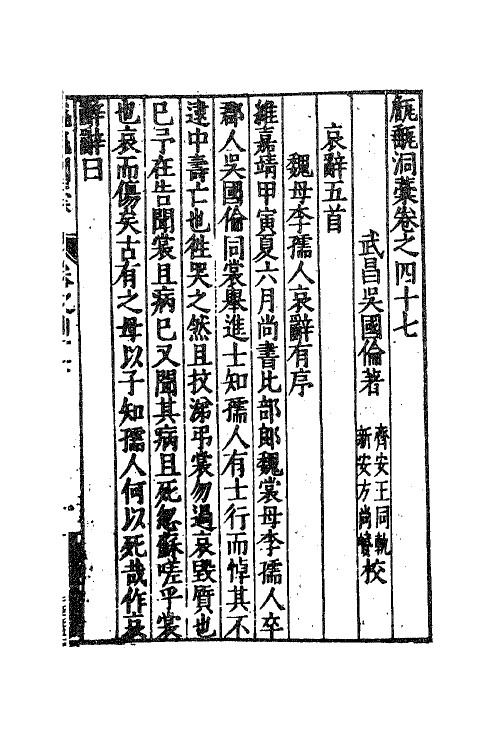 甔甀洞藁卷之四十七
武昌吳國倫著
齊安王同軌
新安方尚贇校
哀辭五首
魏母李孺人哀辭有序
維嘉靖甲寅夏六月尚書比部郎魏裳母李孺人卒
郡人吳國倫同裳舉進士知孺人有士行而悼其不
逮中壽亡也徃哭之然且抆涕弔裳勿過哀毀質也
巳予在告聞裳且病巳又聞其病且死忽蘇嗟乎裳
也哀而傷矣古有之母以子知孺人何以死哉作哀
辭辭曰